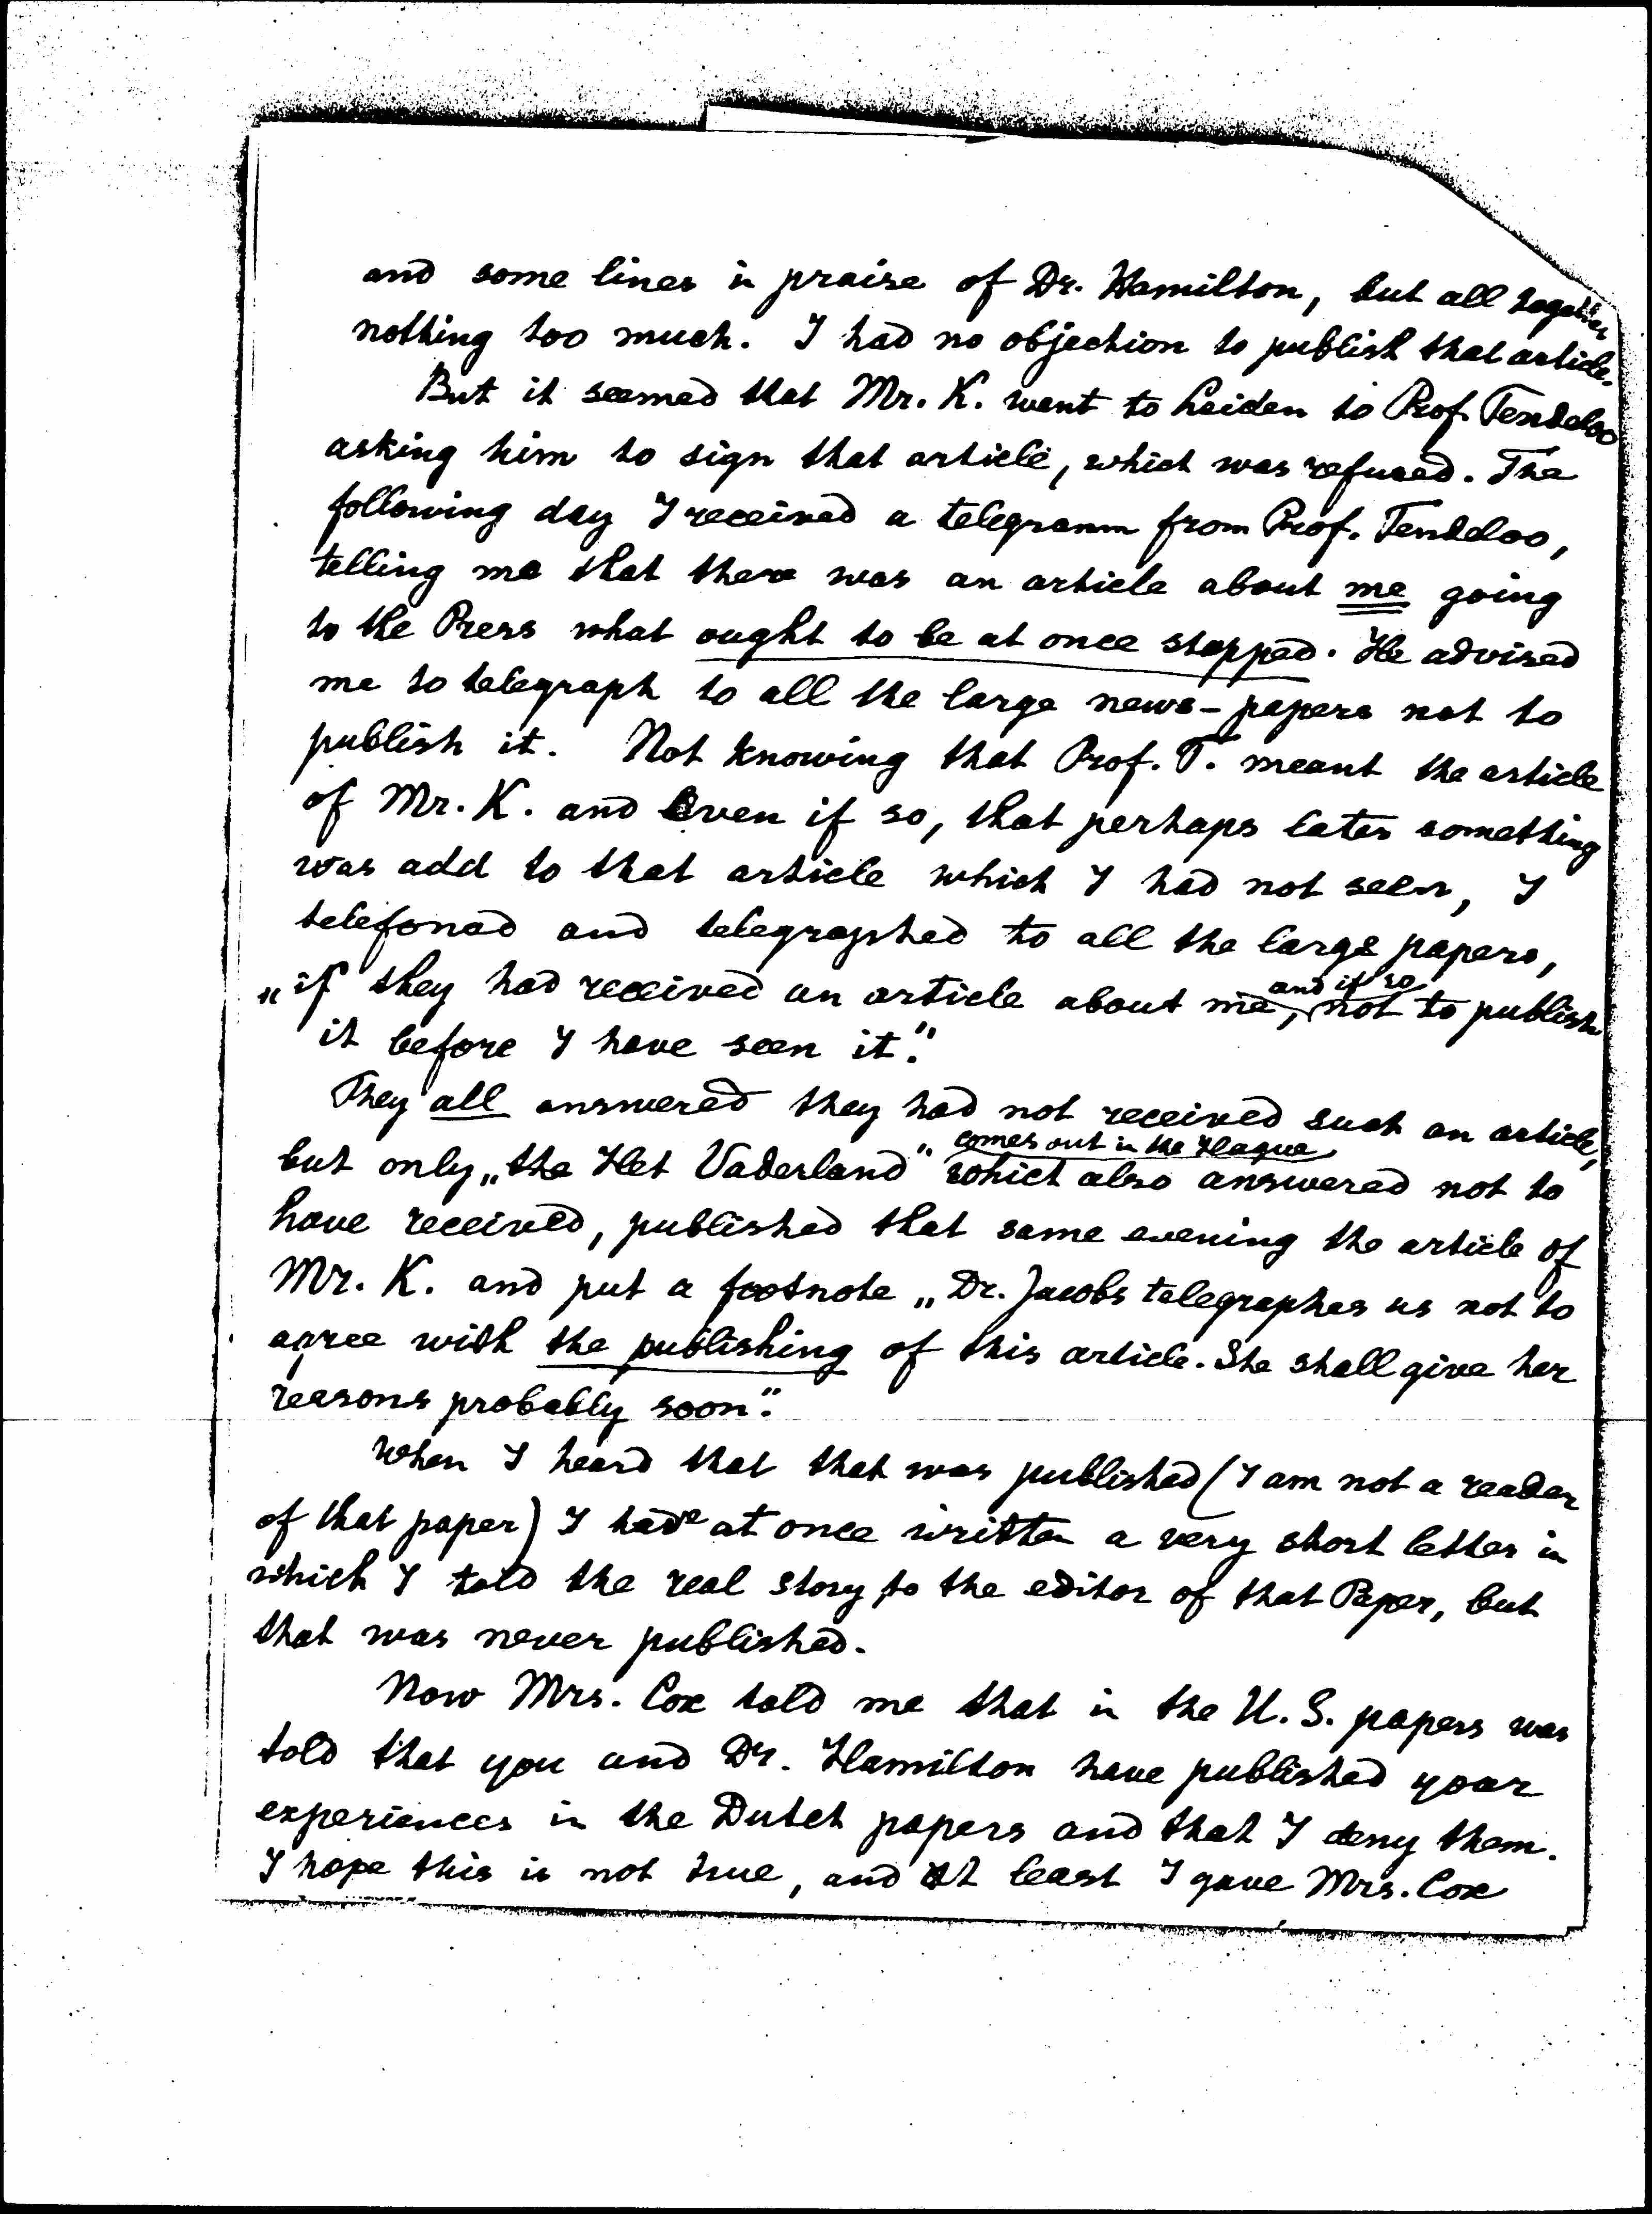 and some lines in praise of Dr. Hamilton, but all together
nothing too much. I had no objection to publish that article.
But it seemed that Mr. K. went to Leiden to Prof. Tendeloo
asking him to sign that article, which was refused. The
following day I received a telegramm from Prof. Tendeloo,
telling me that there was an article about me going
to the Press what ought to be at once stopped. He advised
me to telegraph to all the large news-papers not to
publish it. Not knowing that Prof. T. meant the article
of Mr. K. and even if so, that perhaps later something
was add to that article which I had not seen, I
telefoned and telegraphed to all the large papers,
„if they had received an article about me, and if so not to publish
it before I have seen it."
They all answered they had not received such an article,
but only „the Het Vaderland" comes out in the Hague which also answered not to
have received, published that same evening the article of
Mr. K. and put a footnote „Dr. Jacobs telegraphes us not to
agree with the publishing of this article. She shall give her
reasons probably soon."
When I heard that that was published (I am not a reader
of that paper) I have at once written a very short letter in
which I told the real story to the editor of that Paper, but
that was never published.
Now Mrs. Cox told me that in the U. S. papers was
told that you and Dr. Hamilton have published your
experiences in the Dutch papers and that I deny them.
I hope this is not true, and at least I gave Mrs. Cox